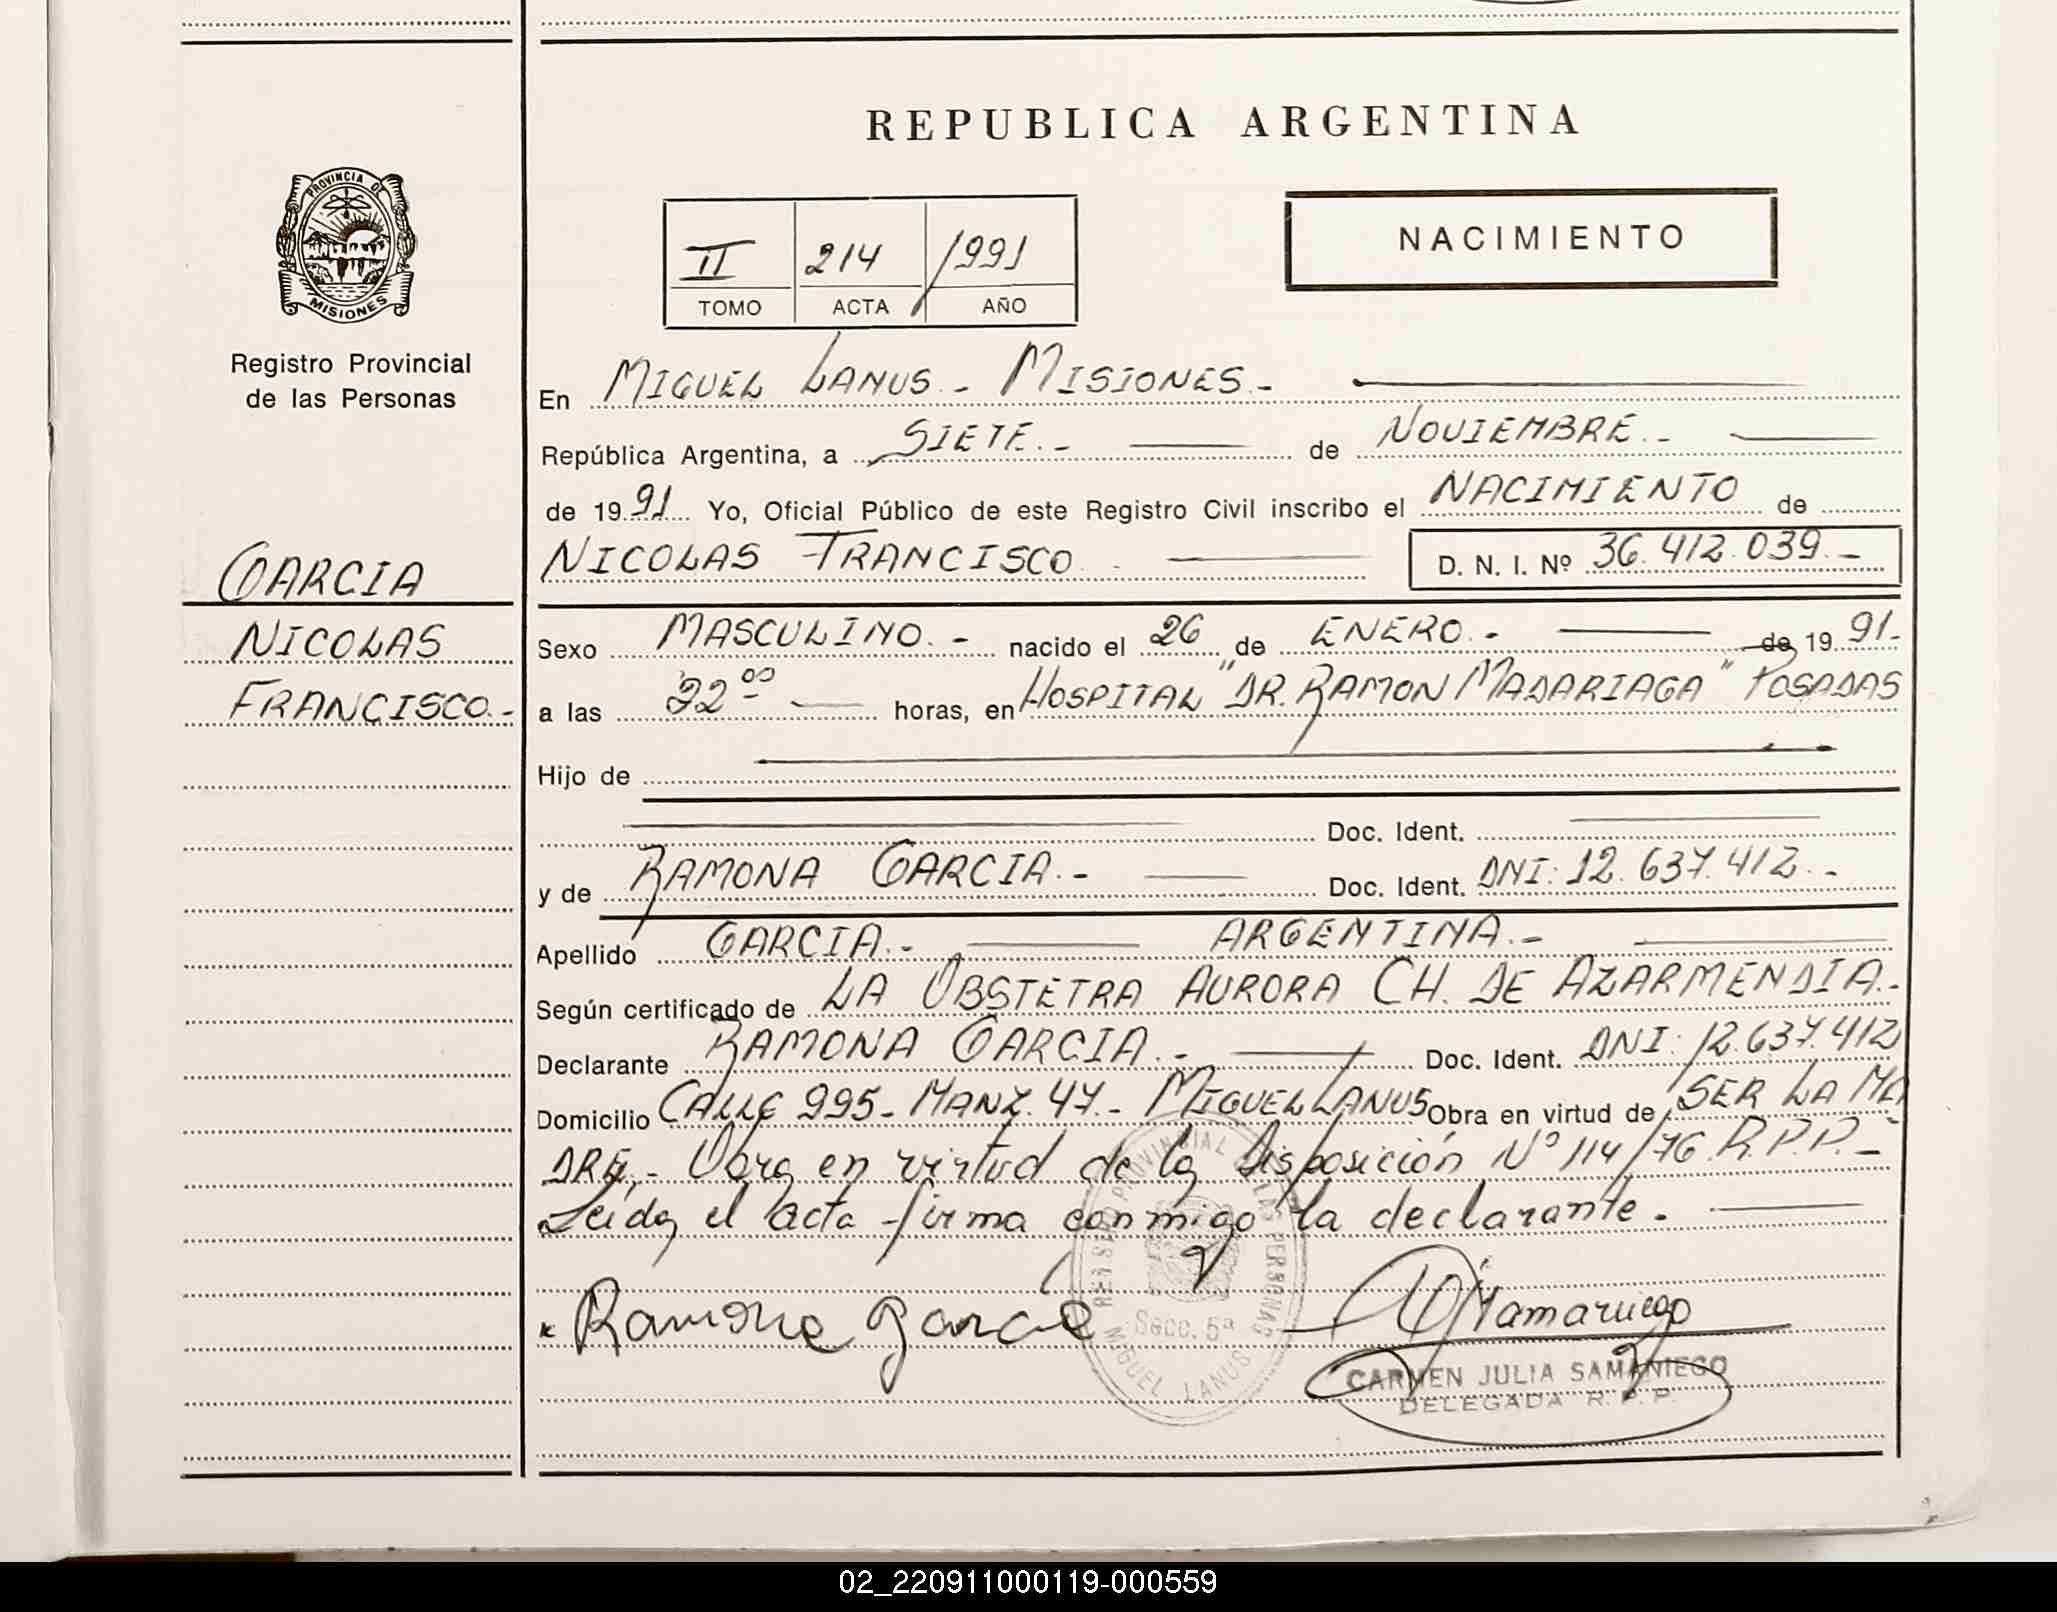 REPUBLICA ARGENTINA
PROVINCIA DE
MISIONES
Registro Provincial
de las Personas
II 214 1991
TOMO ACTA AÑO
NACIMIENTO
En MIGUEL LANUS.- MISIONES.-
República Argentina, a SIETE.- de NOVIEMBRE.-
de 1991 Yo, Oficial Público de este Registro Civil inscribo el NACIMIENTO de
NICOLAS FRANCISCO D. N. I. Nº 36.412.039.-
GARCIA
NICOLAS
FRANCISCO.-
Sexo MASCULINO.- nacido el 26 de ENERO.- de 1991.-
a las 22 00 horas, en HOSPITAL "DR. RAMON MADARIAGA" POSADAS
Hijo de
Doc. Ident.
y de RAMONA GARCIA.- Doc. Ident. DNI: 12.637.412.-
Apellido GARCIA.- ARGENTINA.-
Según certificado de LA OBSTETRA AURORA CH. DE AZARMENDIA.-
Declarante RAMONA GARCIA.- Doc. Ident. DNI: 12.637.412
Domicilio CALLE 995- MANZ. 47.- MIGUEL LANUS Obra en virtud de SER LA MA
DRE.- Obra en virtud de la Disposición Nº 114/76 R.P.P.-
Leida el acta firma conmigo la declarante.
Ramona Garcia
REGISTRO PROVINCIAL DE LAS PERSONAS
Secc. 5ª
MIGUEL LANUS
CARMEN JULIA SAMANIEGO
DELEGADA R. P. P.
02_220911000119-000559